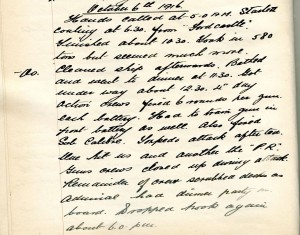 October 6th 1916
Hands called at 5-0 A.M. Started
coaling at 6.30. from "Fordcastle"
Finished about 10.30. Took in 580
tons but seemed much more.
-do. Cleaned ship afterwards. Bathed
and went to dinner at 11.30. Got
under way about 12.30. 4" day
action crews fired 6 rounds per gun
each battery. Had to train gun in
front battery as well. Also fired
Sub Calibre. Torpedo attack after tea.
One hit us and another the "P.R."
Guns crews closed up during attack.
Remainder of crew scrubbed decks as
Admiral had dinner party on
board. Dropped hook again
about 6.0 p.m.